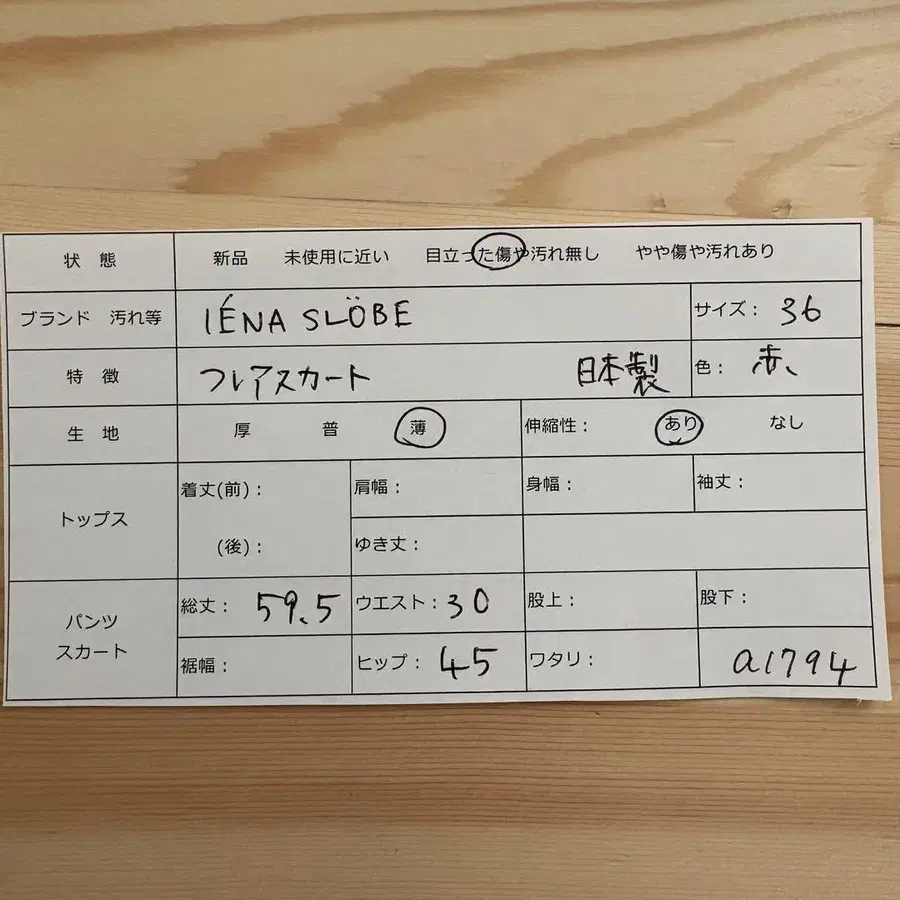 状 態 新品 未使用に近い 目立った傷や汚れ無し やや傷や汚れあり
ブランド 汚れ等 IÉNA SLÖBE サイズ: 36
特 徴 フレアスカート 日本製 色: 赤、
生 地 厚 普 薄 伸縮性: あり なし
トップス 着丈(前): 肩幅: 身幅: 袖丈:
(後): ゆき丈:
パンツ スカート 総丈: 59.5 ウエスト: 30 股上: 股下:
裾幅: ヒップ: 45 ワタリ: a1794